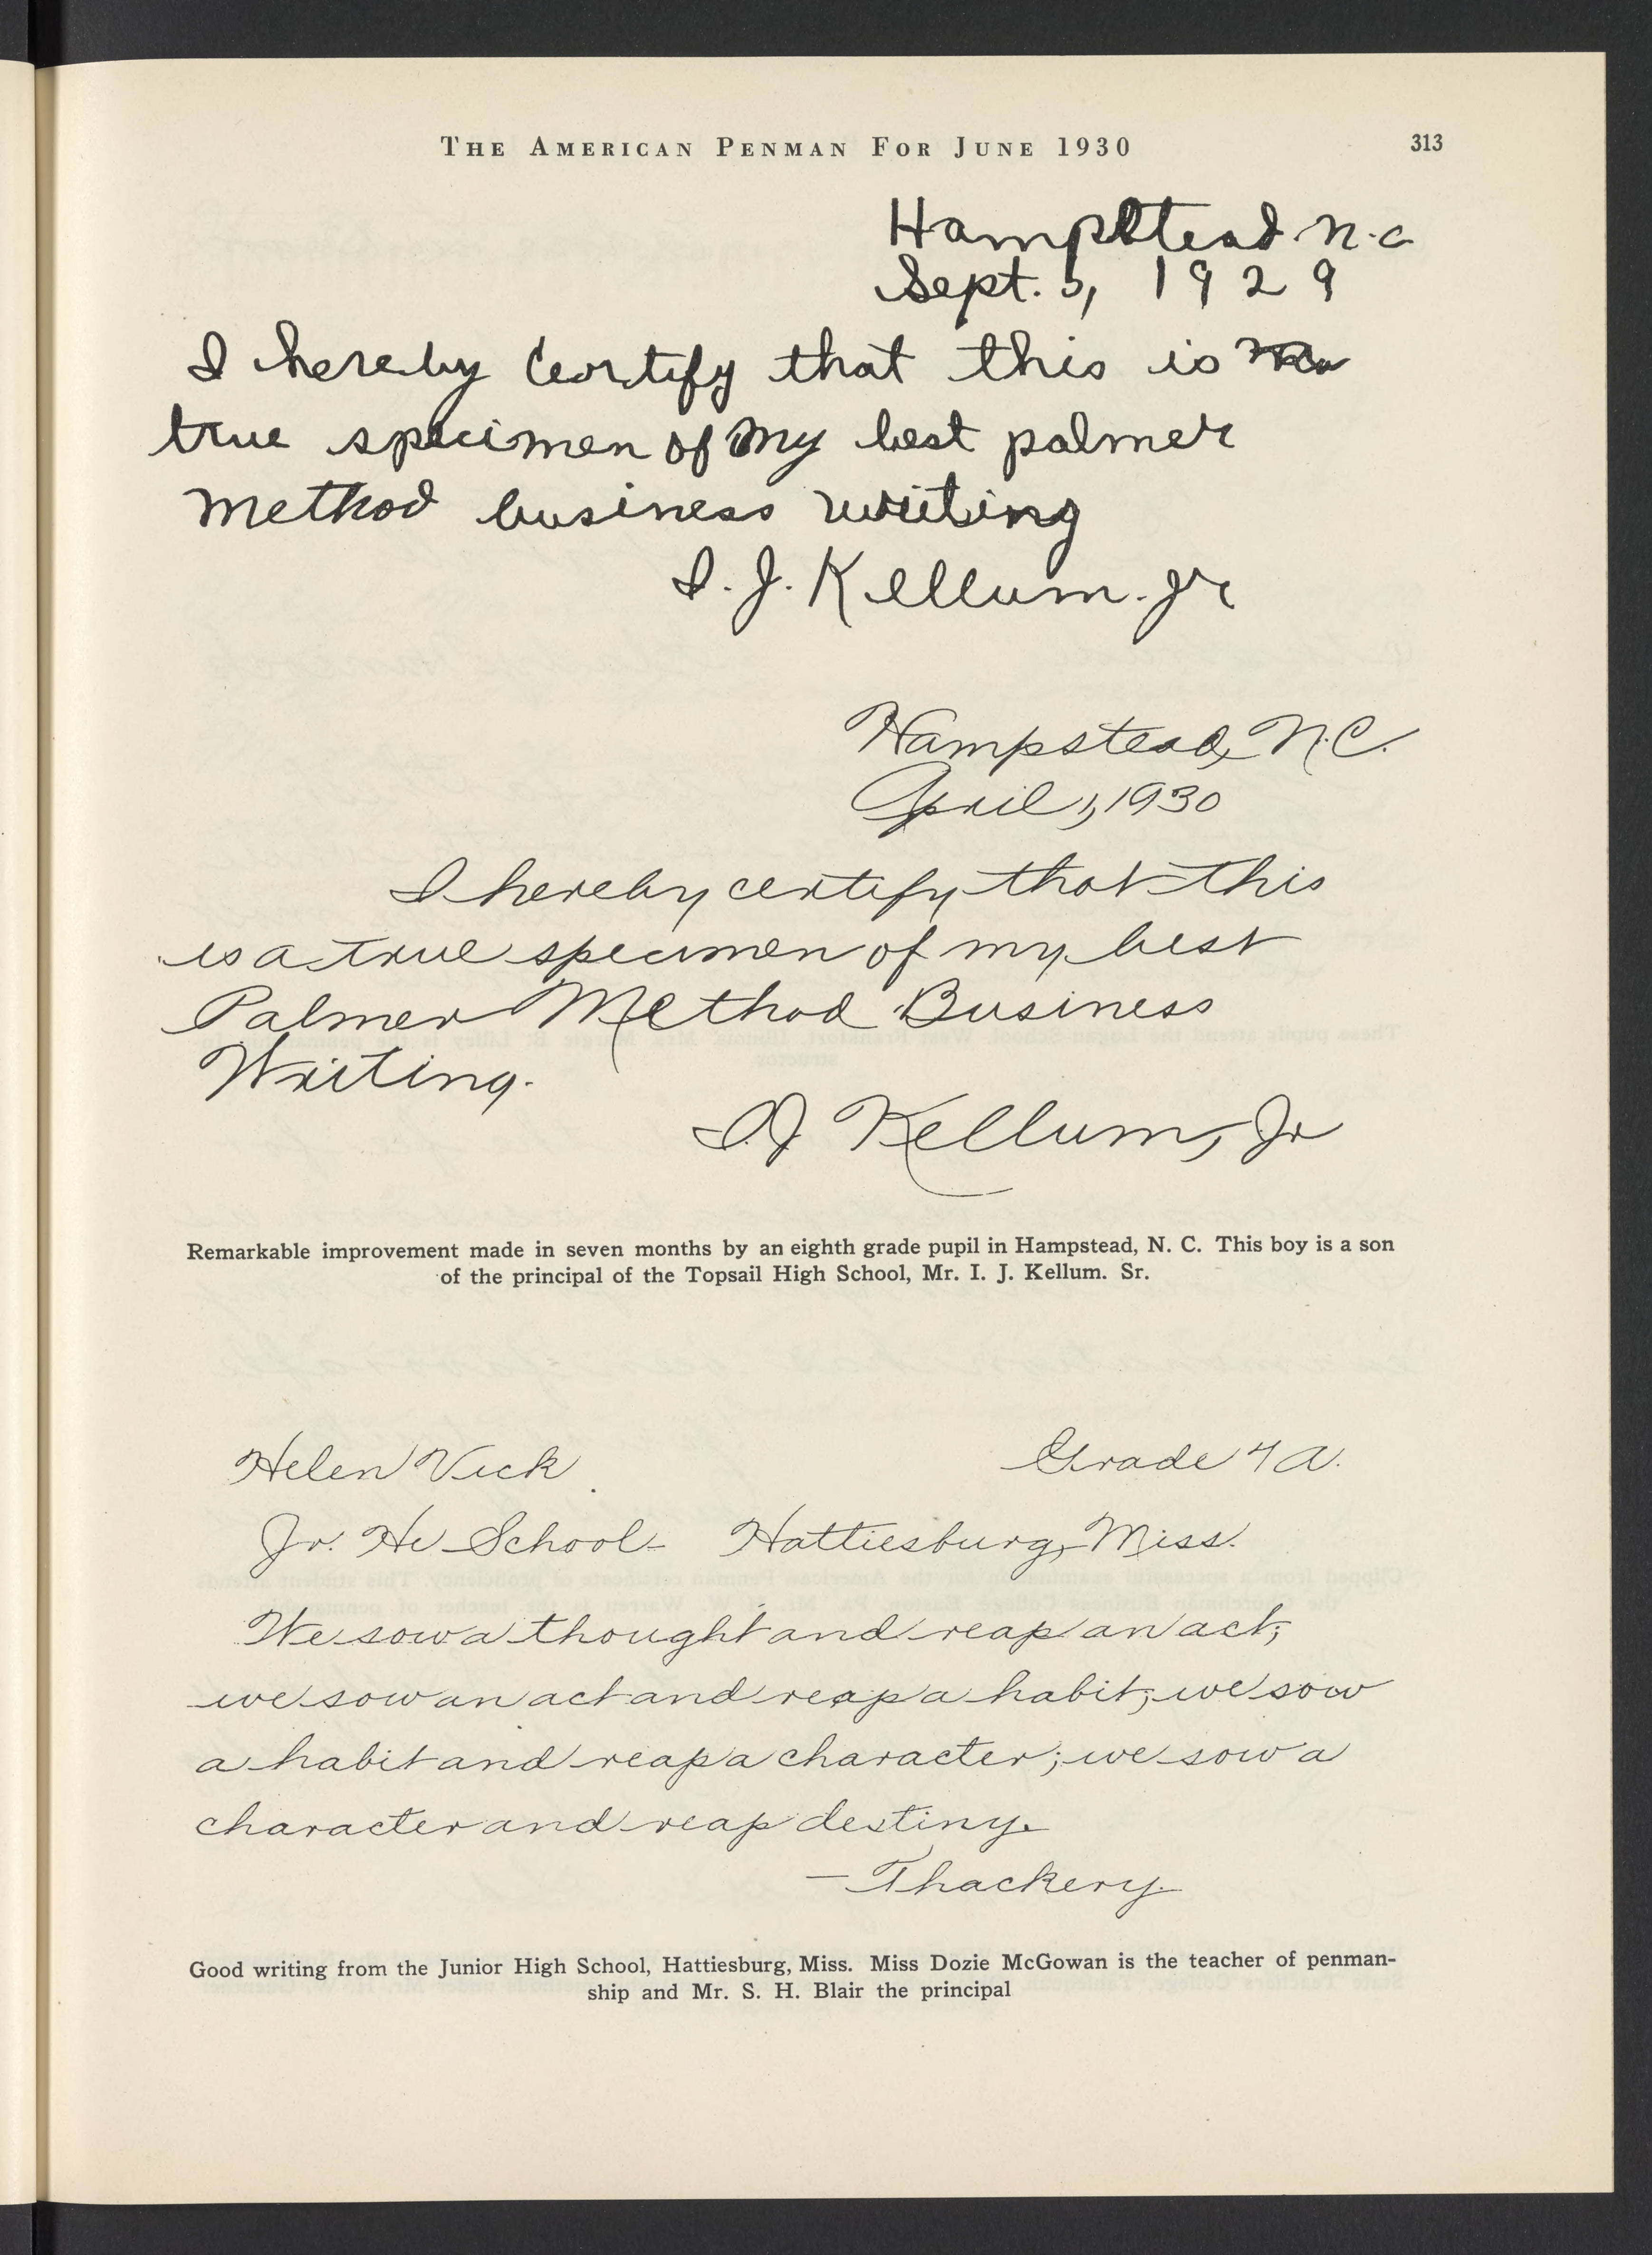 THE AMERICAN PENMAN FOR JUNE 1930
313
Hampstead N.C
Sept. 5, 1929
I hereby certify that this is
true specimen of my best palmer
method business writing
I. J. Kellum. Jr
Hampstead, N.C.
April 1, 1930
I hereby certify that this
is a true specimen of my best
Palmer Method Business
Writing.
I.J. Kellum, Jr
Remarkable improvement made in seven months by an eighth grade pupil in Hampstead, N. C. This boy is a son
of the principal of the Topsail High School, Mr. I. J. Kellum. Sr.
Helen Vick
Grade 7A.
Jr. Hi School- Hattiesburg, Miss.
We sow a thought and reap an act;
we sow an act and reap a habit; we sow
a habit and reap a character; we sow a
character and reap destiny.
—Thackery.
Good writing from the Junior High School, Hattiesburg, Miss. Miss Dozie McGowan is the teacher of penman-
ship and Mr. S. H. Blair the principal